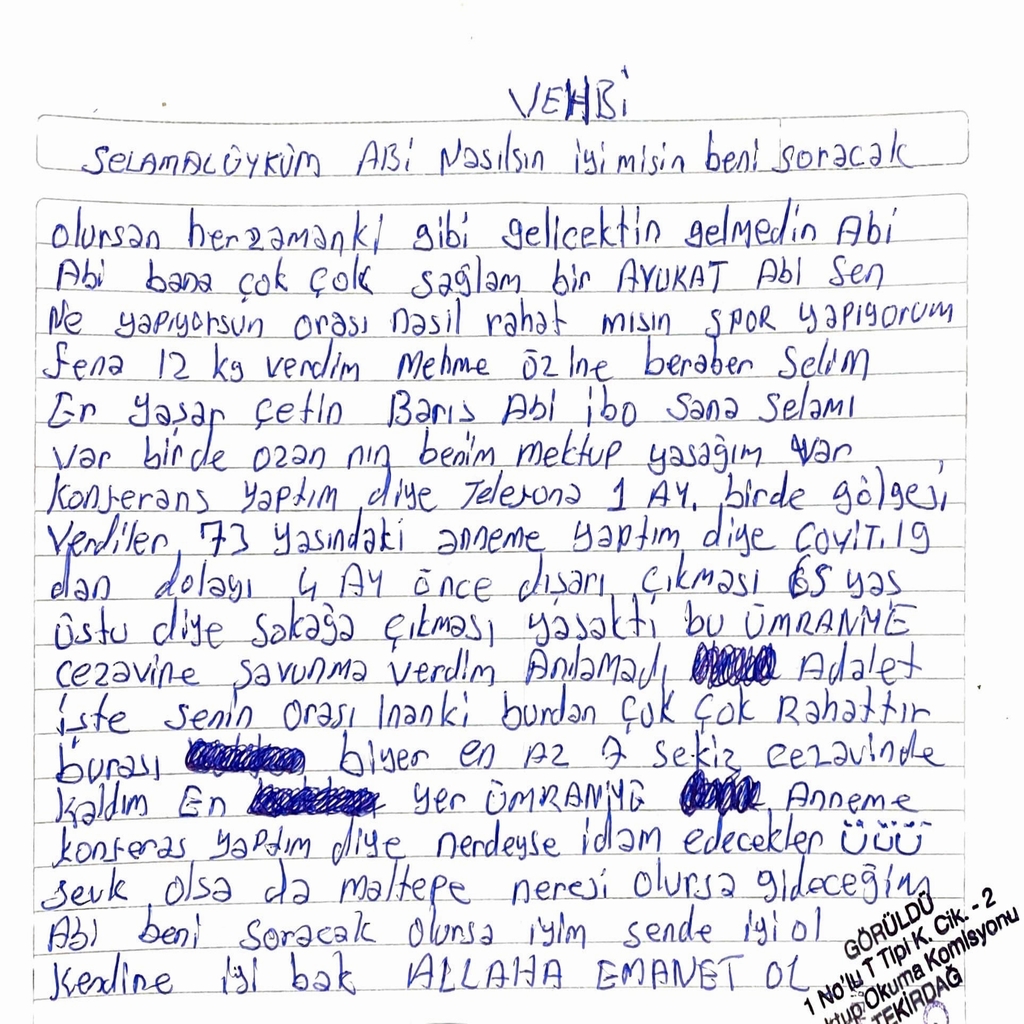 VEHBİ
SELAMALÜYKÜM ABİ Nasılsın iyi misin beni soracak
olursan herzamanki gibi gelicektin gelmedin Abi
Abi bana çok çok sağlam bir AVUKAT Abi Sen
Ne yapıyorsun orası nasıl rahat mısın SPOR yapıyorum
fena 12 kg verdim Mehme özlne beraber Selim
Er yaşar çetin Barıs Abi ibo sana selamı
var birde ozan nın benim mektup yasağım var
konferans yaptım diye Telefona 1 AY. birde
verdiler 73 yasındaki anneme yaptım diye COVİT.19
dan dolayı 4 AY önce dışarı çıkması 65 yas
üstü diye sokağa çıkması yasaktı bu ÜMRANİYE
cezavine savunma verdim Anlamadı Adalet
işte senin orası inanki burdan çok çok Rahattır
burası biyer en Az 7 sekiz cezavinde
kaldım En yer ÜMRANİYE Anneme
konferas yaptım diye nerdeyse idam edecekler Üüü
sevk olsa da maltepe neresi olursa gideceğim
Abi beni soracak olursa iyim sende iyi ol
kendine iyi bak ALLAHA EMANET OL
GÖRÜLDÜ
1 No'lu T Tipi K. Cik. - 2
Okuma Komisyonu
TEKİRDAĞ